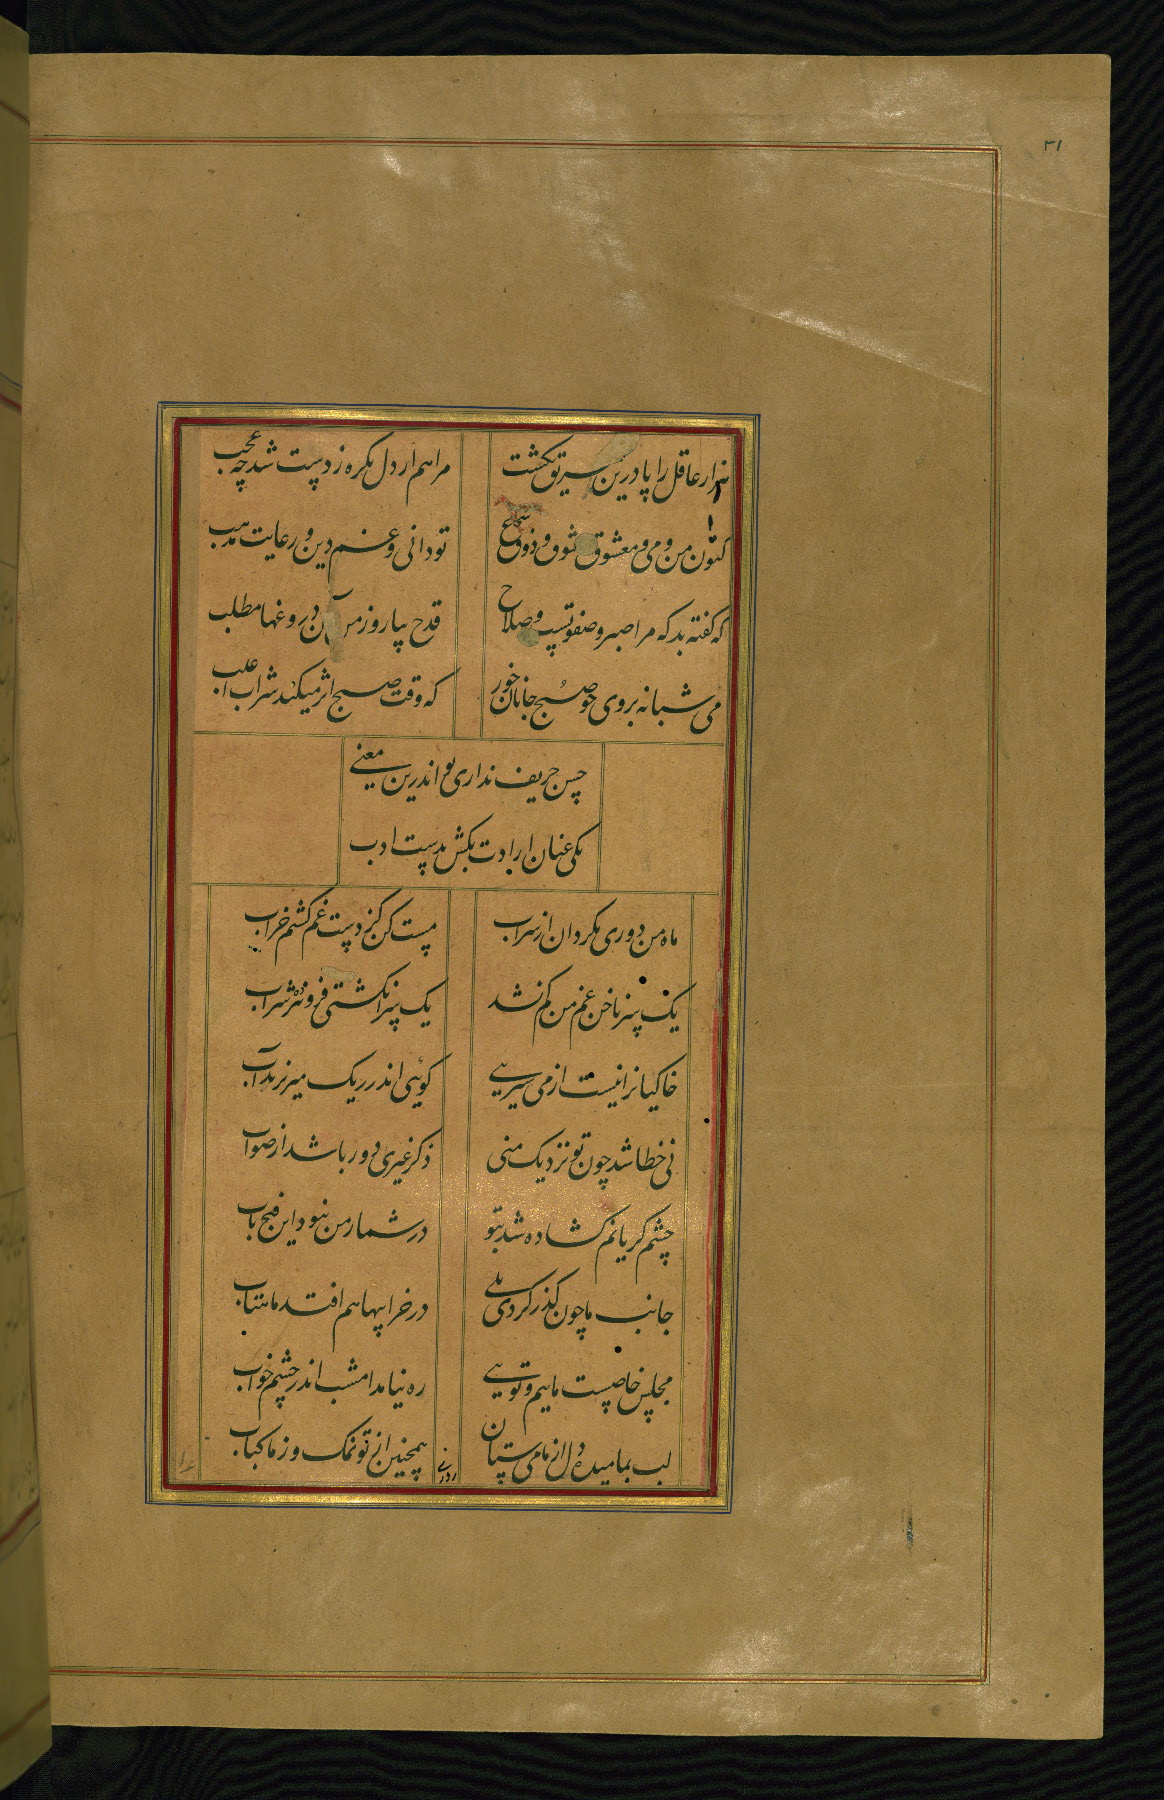 ۳۱
هزار عاقل را پا درین سیر تو کشت
مرا هم ار دل بکره ز دست شد چه عجب
کنون من و می و معشوق و شوق و ذوق
تو دانی و غم دین و رعایت مذهب
که گفته بد که مرا صبر و صفوتست و صلاح
قدح بیار و ز من دروغها مطلب
می شبانه بروی چو صبح جانان خور
که وقت صبح اثر میکند شراب اغلب
حسن حریف نداری تو اندرین معنی
یکی عنان ارادت بکش بدست ادب
ماه من دوری بگردان از شراب
مست کن کز دست غم گشتم خراب
یک سر ناخن غم من کم نشد
یک سر انگشتی فرو شراب
خاکیانرا نیست از می سیریی
کوئی اندر ریک میریزند آب
نی خطا شد چون تو نزدیک منی
ذکر غیری دور باشد از صواب
چشم کریانم کشاده شد بتو
در شمار من نبود این فتح باب
جانب ما چون کذر کردی بلی
در خرابیها هم افتد ماهتاب
مجلس خاصست ماییم و تویی
ره نیامد امشب اندر چشم خواب
لب بما میده دل از ما می ستان
همچنین از تو نمک وز ما کباب